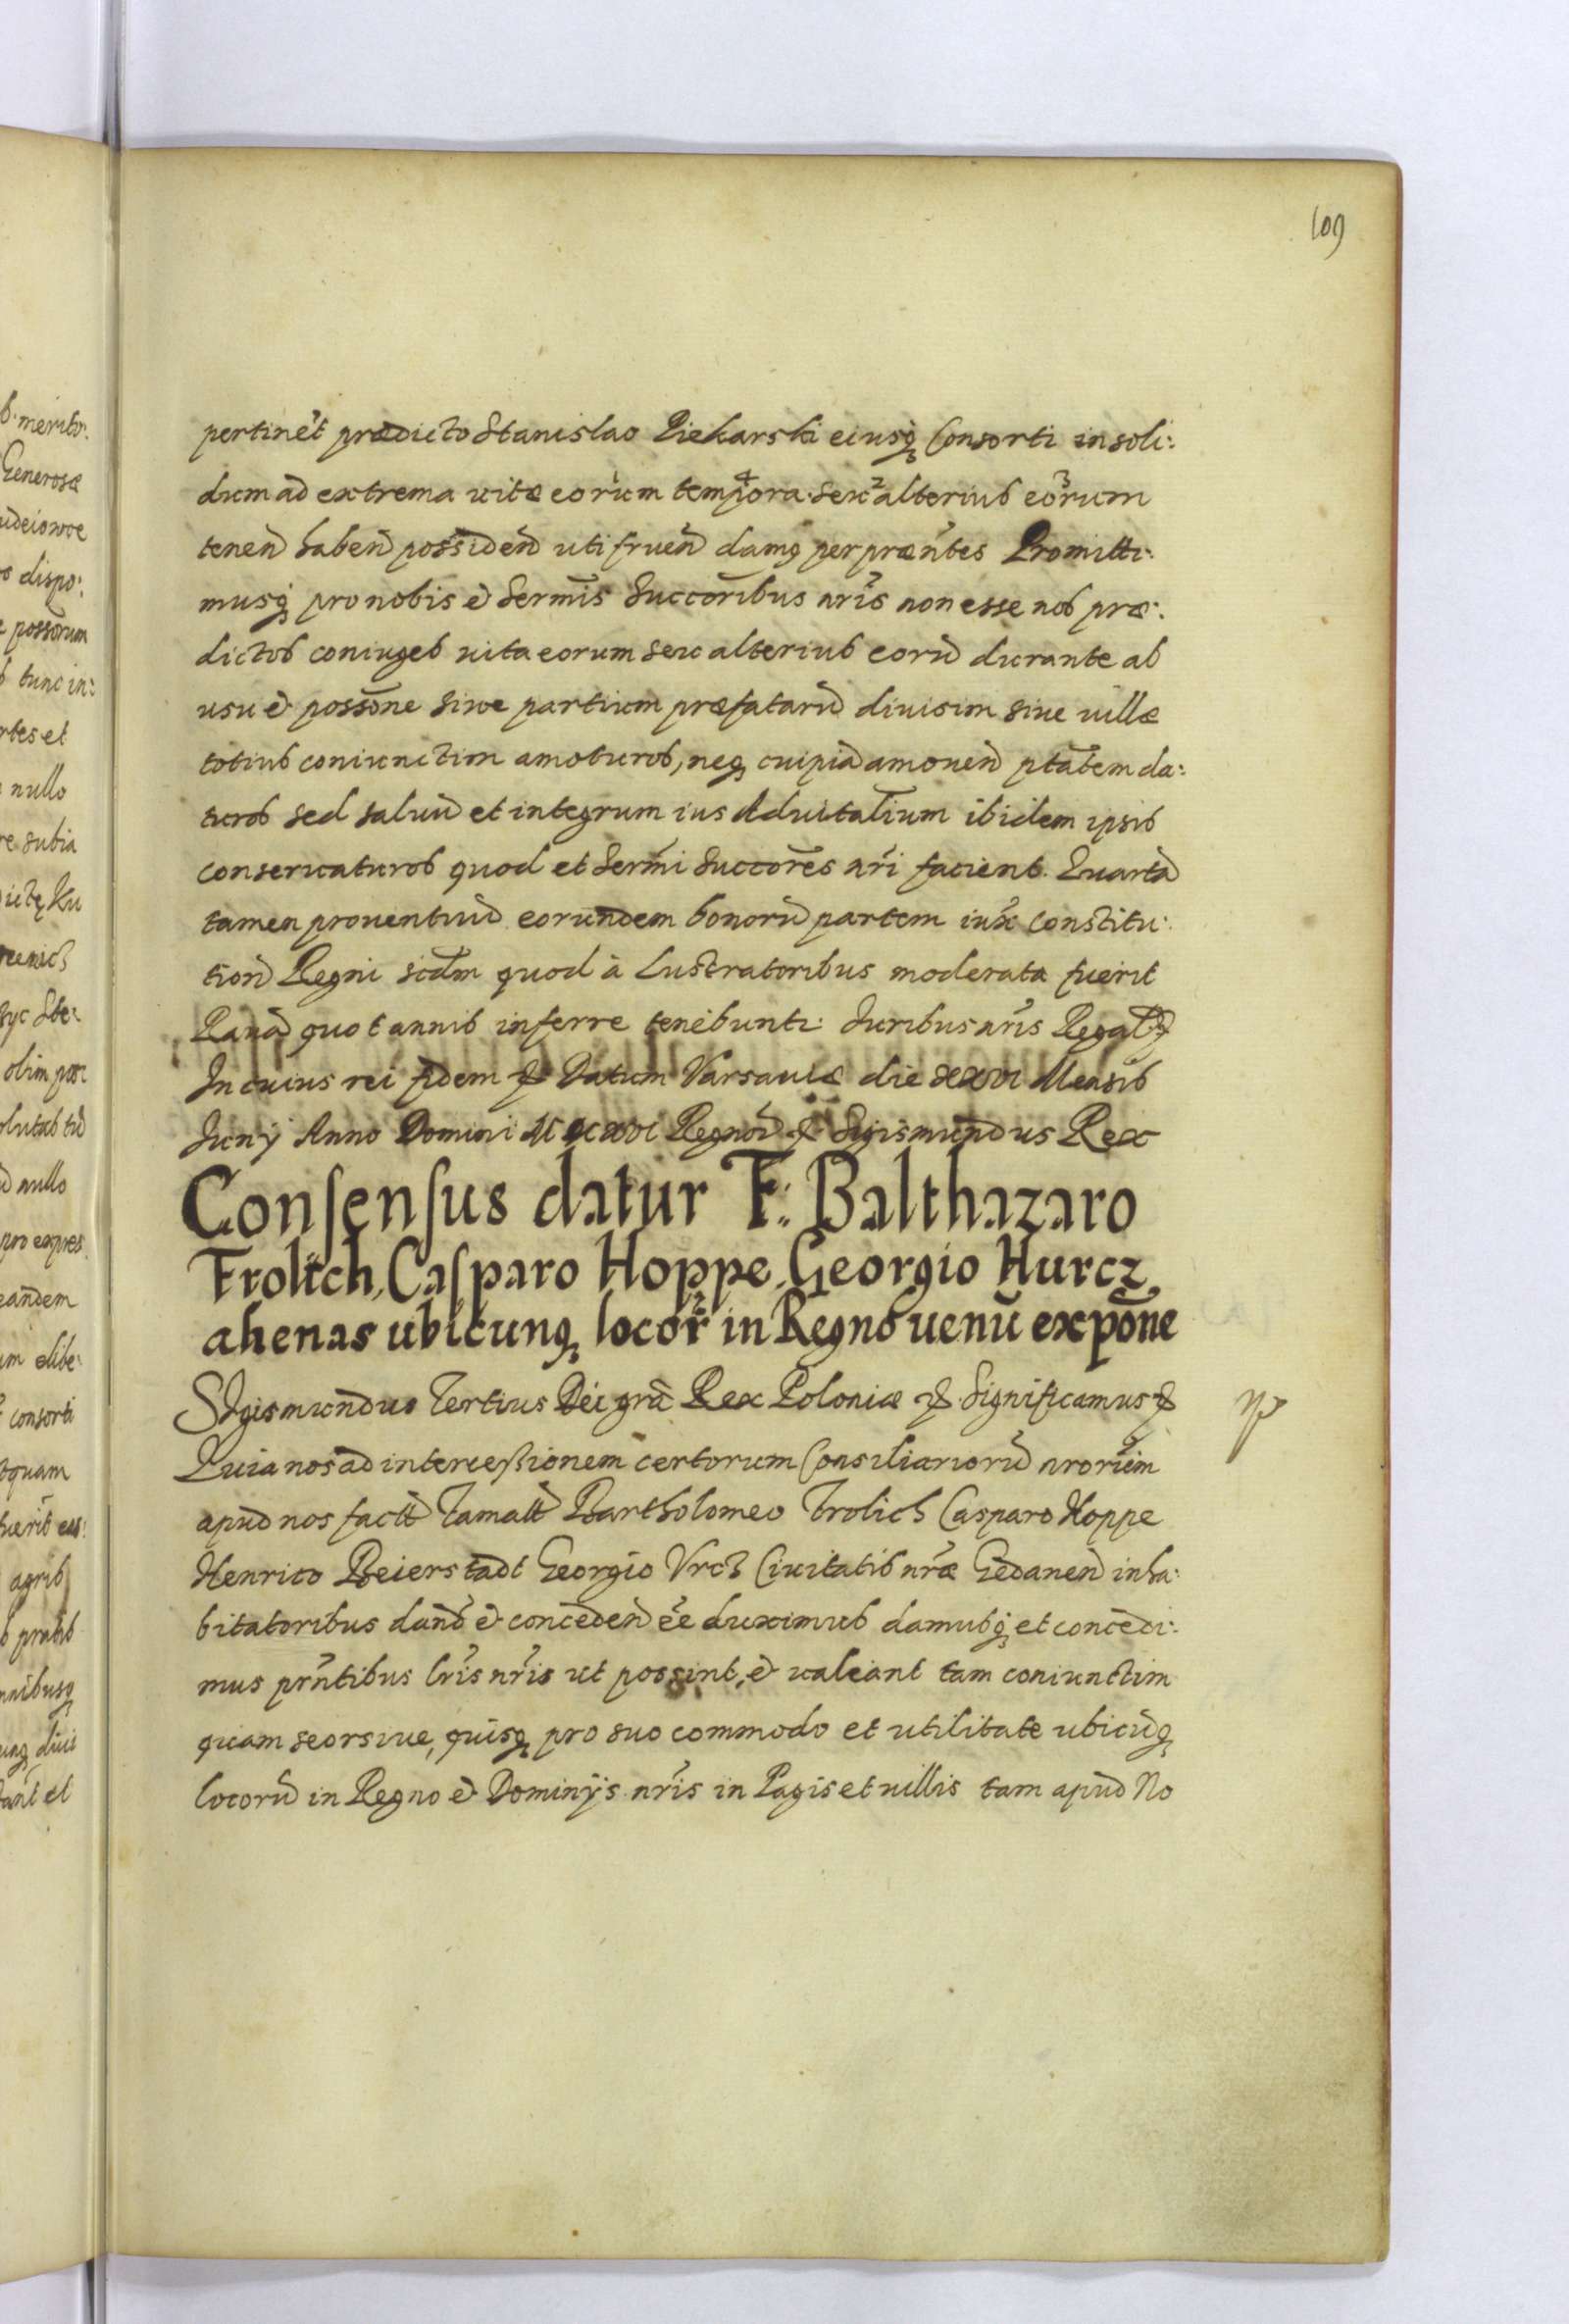 109
pertinēt prædicto Stanislao Piekarski eiusq̨ Consorti in soli:
dum ad extrema vitæ eorum tempora seu alterius eorum
tenen̄ haben̄ possiden̄ uti fruen̄ damq̨ per prænt̄es Promitti:
musq̨ pro nobis et Serm̄is Succorībus nr̄is non esse nos præ:
dictos coniuges vita eorum seu alterius eorū durante ab
usu et possōne siue partium præfatarū diuisim siue villæ
totius coniunctim amoturos, neq̨ cuipiā amouen̄ ptātem da:
turos sed saluū et integrum ius Aduitalīum ibidem ipsis
conseruaturos quod et Serm̄i Succorēs nr̄i facient. Quartā
tamen prouentuū eorundem bonorū partem iux̄ Constitu:
tion̄ Regni scd̄m quod à Lustratoribus moderata fuerit
Rauā quotannis inferre tenebunt: Juribus nr̄is Regal̄ &
In cuius rei fidem & Datum Varsauiæ die XXVI Mensis
Junÿ Anno Domini Regnor̄ & Sigismundus Rex
Consensus datur F: Balthazaro
Frolich, Casparo Hoppe, Georgio Hurcz
ahenas ubicunq̨ locor̄ in Regno uenū expōne
SIgismundus Tertius Dei grā Rex Poloniæ & Significamus &
Quia nos ad intercessionem certorum Consiliariorū nrorūm
apud nos factā Famatt̄ Bartholomeo Frolich Casparo Hoppe
Henrico Beierstadt Georgio Vrcz Ciuitatis nr̄æ Gedanen̄ inha:
bitatoribus dand̄ et conceden̄ ēe duximus damusq̨ et concedi:
mus prn̄tibus lr̄is nr̄is ut possint, et ualeant tam coniunctim
quam seorsiue, quisq̨ pro suo commodo et utilitate ubicūq̨
locorū in Regno et Dominÿs nr̄is in Pagis et villis tam apud No